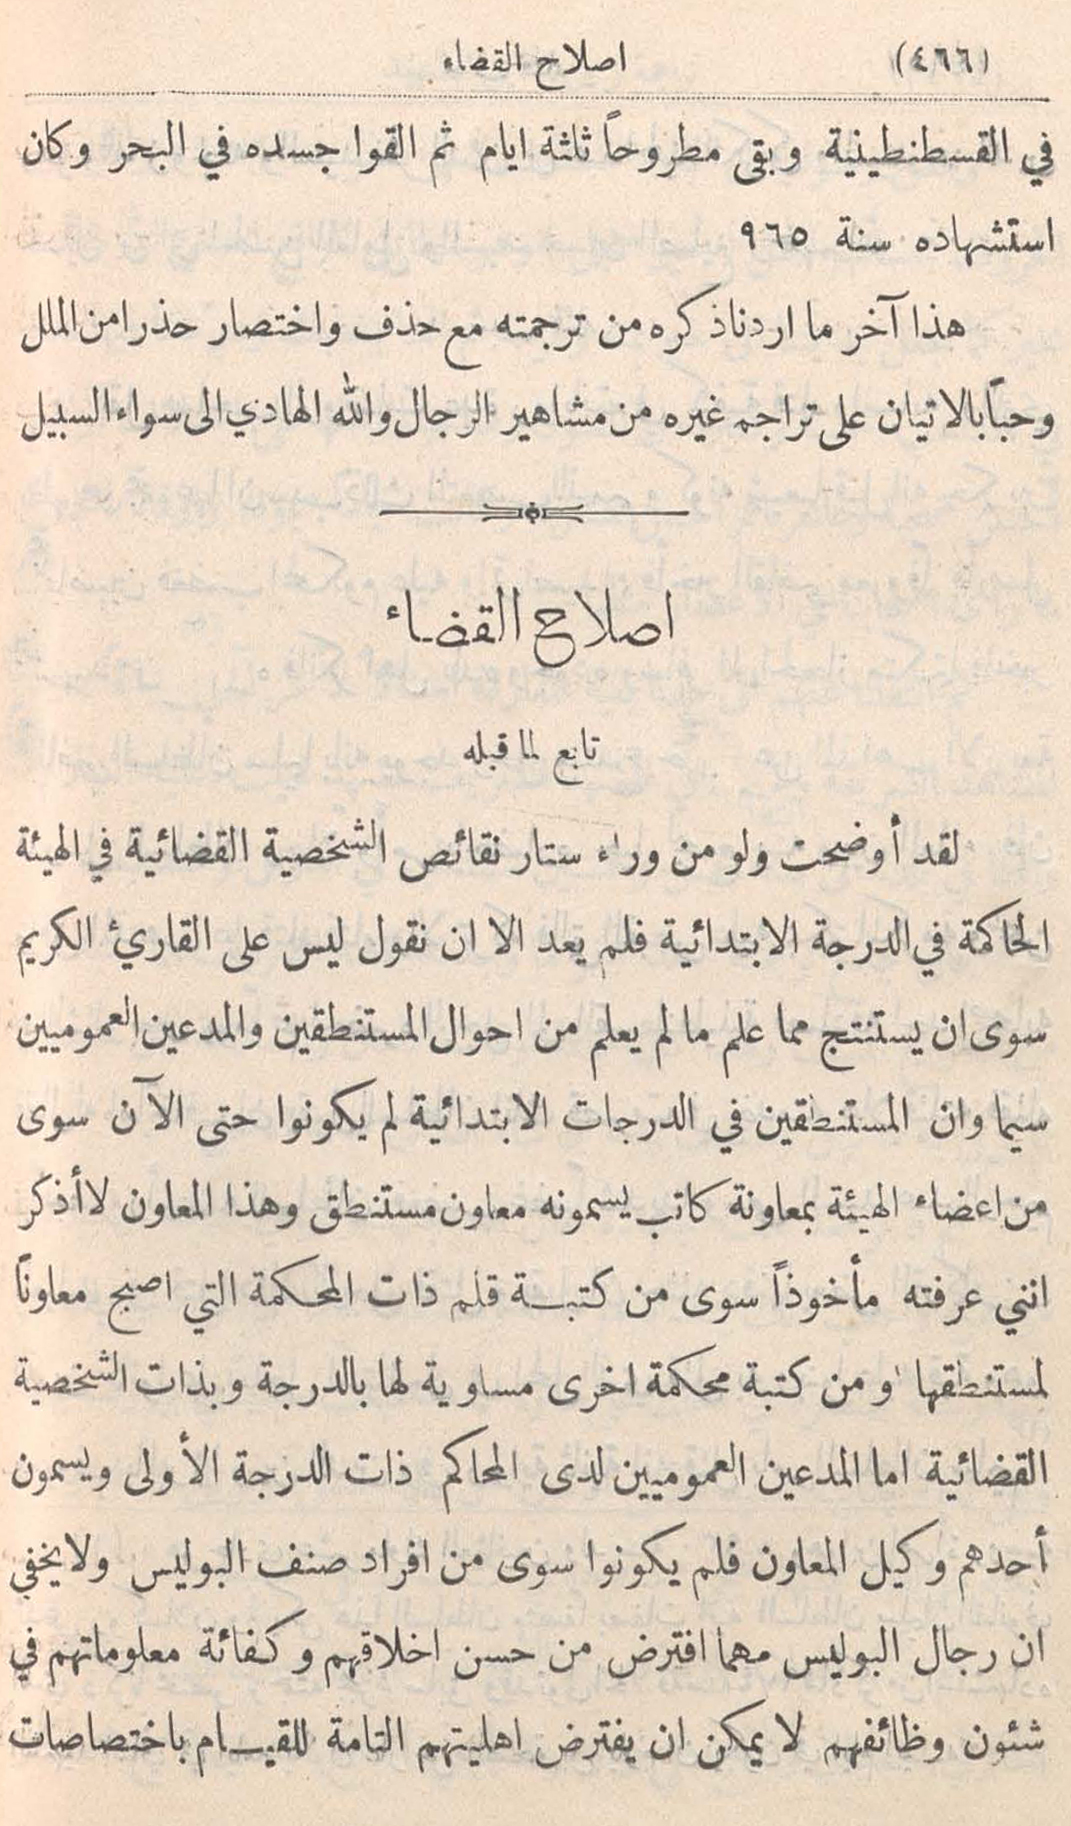 (٤٦٦) اصلاح القضاء
في القسطنطينية وبقى مطروحاً ثلثة ايام ثم القوا جسده في البحر وكان
استشهاده سنة ٩٦٥
هذا آخر ما اردنا ذكره من ترجمته مع حذف واختصار حذرا من الملل
وحباً بالاتيان على تراجم غيره من مشاهير الرجال والله الهادي الى سواء السبيل
اصلاح القضاء
تابع لما قبله
لقد أوضحت ولو من وراء ستار نقائص الشخصية القضائية في الهيئة
الحاكمة في الدرجة الابتدائية فلم يعد الا ان نقول ليس على القاريء الكريم
سوى ان يستنتج مما علم ما لم يعلم من احوال المستنطقين والمدعين العموميين
سيما وان المستنطقين في الدرجات الابتدائية لم يكونوا حتى الآن سوى
من اعضاء الهيئة بمعاونة كاتب يسمونه معاون مستنطق وهذا المعاون لا أذكر
انني عرفته مأخوذاً سوى من كتبة قلم ذات المحكمة التي اصبح معاوناً
لمستنطقها او من كتبة محكمة اخرى مساوية لها بالدرجة وبذات الشخصية
القضائية اما المدعين العموميين لدى المحاكم ذات الدرجة الأولى ويسمون
أحدهم وكيل المعاون فلم يكونوا سوى من افراد صنف البوليس ولا يخفي
ان رجال البوليس مهما افترض من حسن اخلاقهم وكفائة معلوماتهم في
شئون وظائفهم لا يمكن ان يفترض اهليتهم التامة للقيام باختصاصات